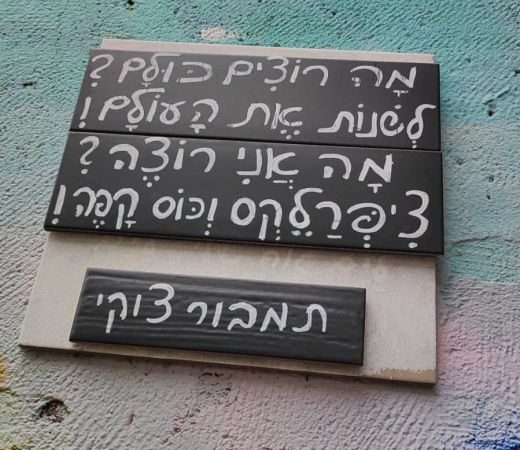 מָה רוֹצִים כּוּלָּם?
לְשַׁנּוֹת אֶת הָעוֹלָם!
מָה אֲנִי רוֹצֶה?
צִיפְּרַלֶקְס וְכוֹס קָפֶה!
תמבור צוקי